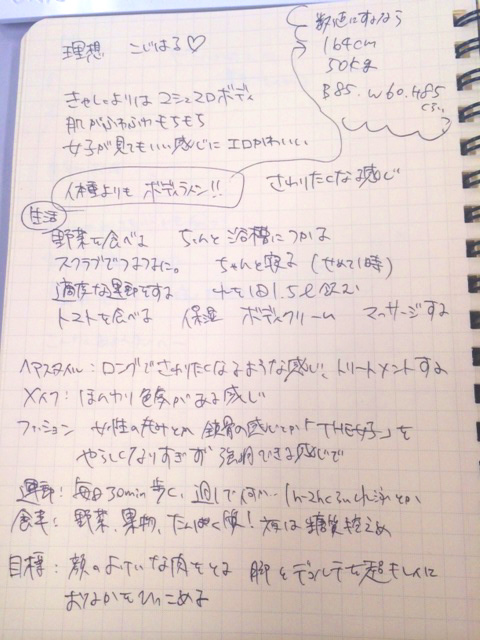 理想 こじはる♡
数値にするなら
164cm
50kg
B85.W60.H85
くらい
きゃしゃよりは コシュコロボディ
肌がふわふわもちもち
女子が見てもいい感じに エロかわいい
体種よりも ボディライン!! さわりたくなる感じ
生活
野菜を食べる ちゃんと浴槽につかる
スクラブでつるつるに。 ちゃんと寝る(せめて1時)
適度な運動をする 水を1日1.5ℓ飲む
トマトを食べる 保湿 ボディクリーム マッサージする
ヘアスタイル:ロングでさわりたくなるような感じ、トリートメントする
メイク:ほんのり色気がある感じ
ファッション 女性の 鎖骨の感じとか「THE女子」を
やらしくなりすぎず 強調できる感じで
運動:毎日30min歩く、週1で 1h~2hくらい とか
食事:野菜、果物、たんぱく質! 夜は糖質控えめ
目標:顔のよけいな肉をとる 脚とデコルテを超キレイに
おなかをひっこめる